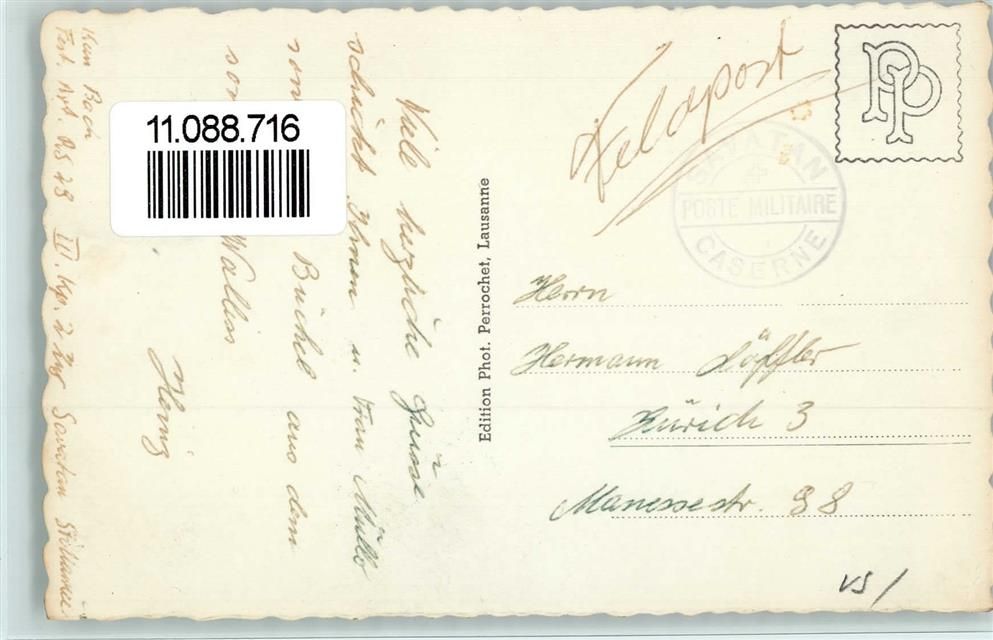 Kan Boch
Fest. Art. RS 43 III. Kp. 2 Zug Savatan
Viele herzliche Grüsse
schickt Ihnen u. Frau
Büchel aus dem
Wallis
11.088.716
Edition Phot. Perrochet, Lausanne
Feldpost
PP
SAVATAN
POSTE MILITAIRE
CASERNE
Herrn
Hermann Löffler
Zürich 3
Manessestr. 98
VS /